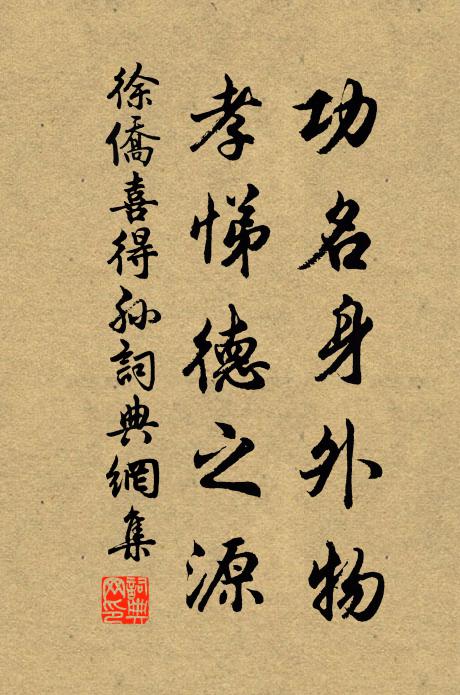 功名身外物
孝悌德之源
徐僑喜得孫詞典網集
詞典网印